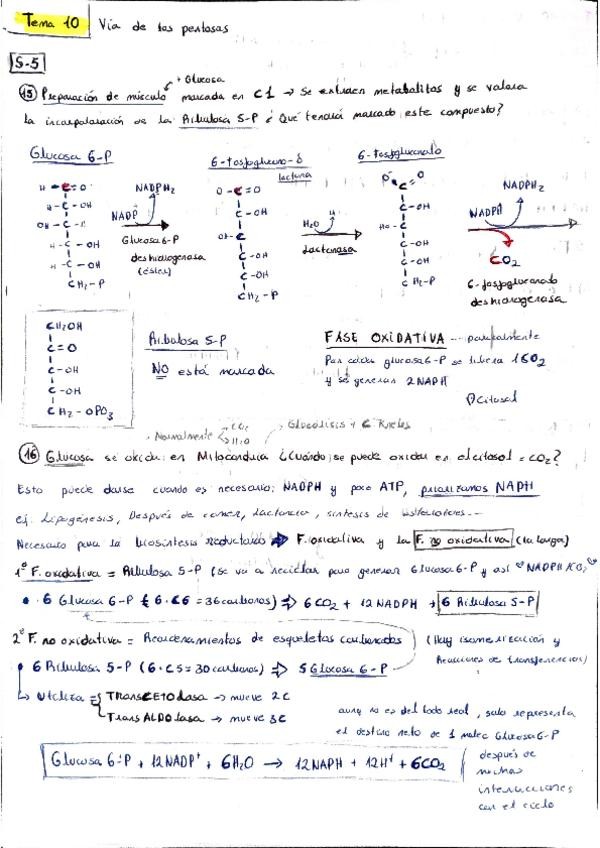 Tema 10 Vía de las pentosas
S-5
+ Glucosa
15 Preparación de músculo marcada en C1 → Se extraen metabolitos y se valora
la incorporación de la Ribulosa 5-P ¿Qué tendrá marcado este compuesto?
Glucosa 6-P
6-Fosfoglucono-δ
lactona
6-Fosfogluconato
H - C = O
H - C - OH
OH - C - H
H - C - OH
H - C - OH
CH2 - P
NADPH2
NADP
Glucosa 6-P
deshidrogenasa
(éster)
O - C = O
C - OH
OH - C
C - OH
C - OH
CH2 - P
H2O
H
Lactonasa
O- C = O
C - OH
HO - C
C - OH
C - OH
CH2 - P
NADPH2
NADPH
CO2
6-fosfogluconato
deshidrogenasa
CH2OH
C = O
C - OH
C - OH
CH2 - OPO3
Ribulosa 5-P
NO está marcada
FASE OXIDATIVA
Por cada glucosa 6-P se libera 1CO2
y se generan 2NAPH
Citosol
Normalmente CO2 H2O
Glucólisis + C Krebs
16 Glucosa se oxida en Mitocondria ¿Cuándo se puede oxidar en el citosol = CO2?
Esto puede darse cuando es necesario: NADPH y poco ATP, priorizamos NAPH
ej. Lipogénesis, Después de comer, lactancia, síntesis de
Necesario para la biosíntesis reductora ⇒ F. oxidativa y la F. no oxidativa (la larga)
1º F. oxidativa = Ribulosa 5-P (se va a reciclar para generar Glucosa 6-P y así NADPH
• 6 Glucosa 6-P (6·C6 = 36 carbonos) ⇒ 6CO2 + 12NADPH + 6 Ribulosa 5-P
2º F. no oxidativa = Reordenamientos de esqueletos carbonados (Hay isomerización y
Reacciones de transferencias)
• 6 Ribulosa 5-P (6·C5 = 30 carbonos) ⇒ 5 Glucosa 6-P
↳ Utiliza = TransCETOlasa → mueve 2C
TransALDOlasa → mueve 3C
aunq no es del todo real, solo representa
el destino neto de 1 molec Glucosa 6-P
después de
muchas
interacciones
con el ciclo
Glucosa 6-P + 12NADP+ + 6H2O → 12NAPH + 12H+ + 6CO2